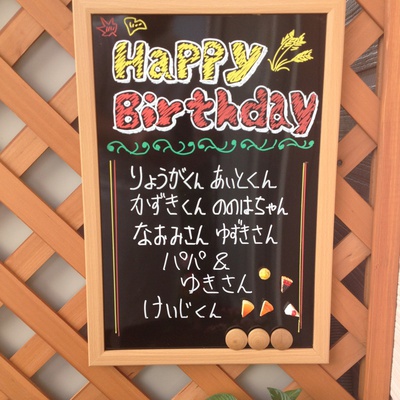 Happy
Birthday
りょうがくん あいとくん
かずきくん ののはちゃん
なおみさん ゆずきさん
パパ &
ゆきさん
けいじくん